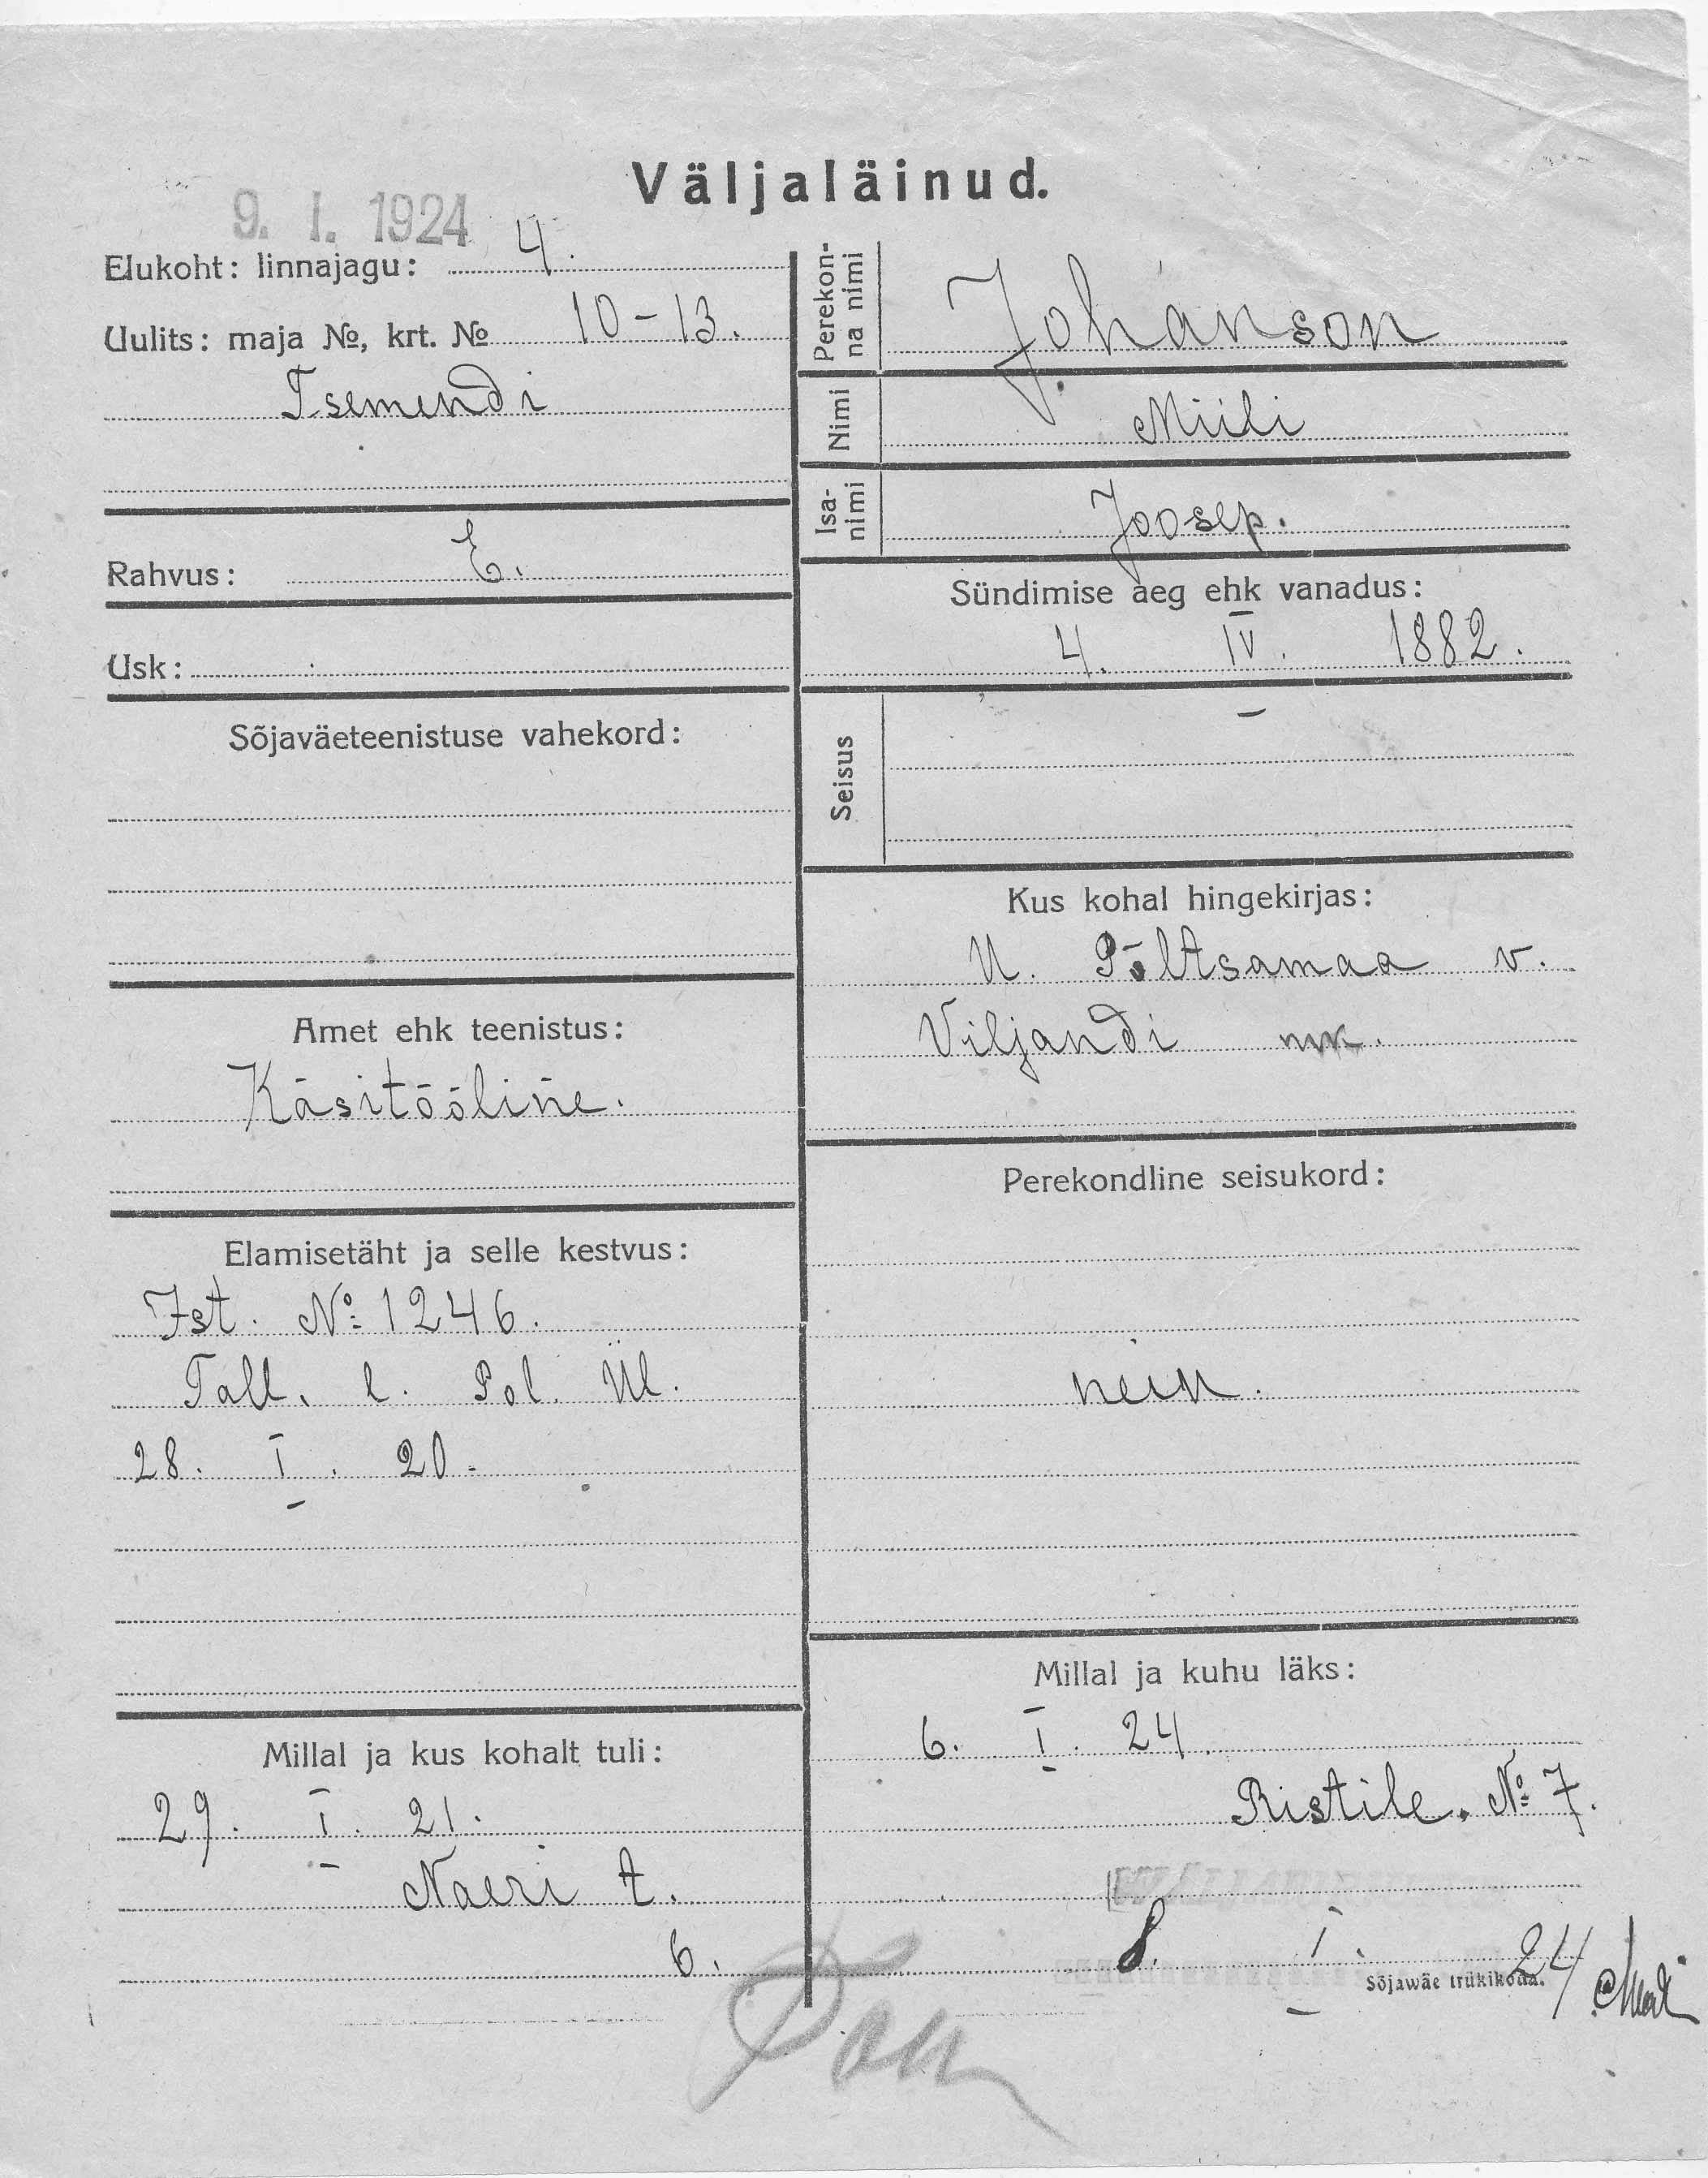 Väljaläinud.
9. I. 1924
Elukoht: linnajagu: 4.
Uulits: maja №, krt. № 10-13.
Tsemendi
Rahvus: E.
Usk:
Sõjaväeteenistuse vahekord:
Amet ehk teenistus:
Käsitööline.
Elamisetäht ja selle kestvus:
Ist. №: 1246.
Tall. l. Pol. Ül.
28. I. 20.
Millal ja kus kohalt tuli:
29. I. 21.
Naeri t.
6.
Perekon-
na nimi
Johanson
Nimi
Miili
Isa-
nimi
Joosep.
Sündimise aeg ehk vanadus:
4. IV. 1882.
Seisus
Kus kohal hingekirjas:
U. Põltsamaa v.
Viljandi mk.
Perekondline seisukord:
neiu.
Millal ja kuhu läks:
6. I. 24.
Ristile. №: 7.
8. I. 24
Sõjawäe trükikoda.